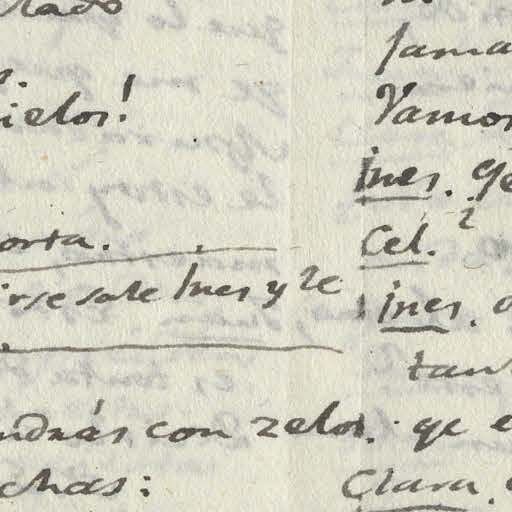 lado
ielos!
orta.
irse sale Ines y le
ndrás con zelos.
chas:
Jama
Vamos
Ines. qe
Cel.
Ines.
tant
qe e
Clara.